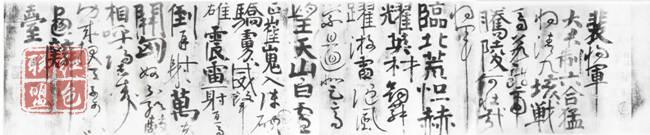 裴將軍
大君制六合猛
將清九垓戰
馬若龍虎
騰陵何壯哉
將軍
臨北荒烜赫
耀英材劍舞
躍游電隨風
縈且迴登高
望天山白雪
正崔嵬入陣破
驕虜威聲
雄震雷一射百馬
倒再射萬
開匈奴不敢
相呼歸去來
臺
红色
联盟